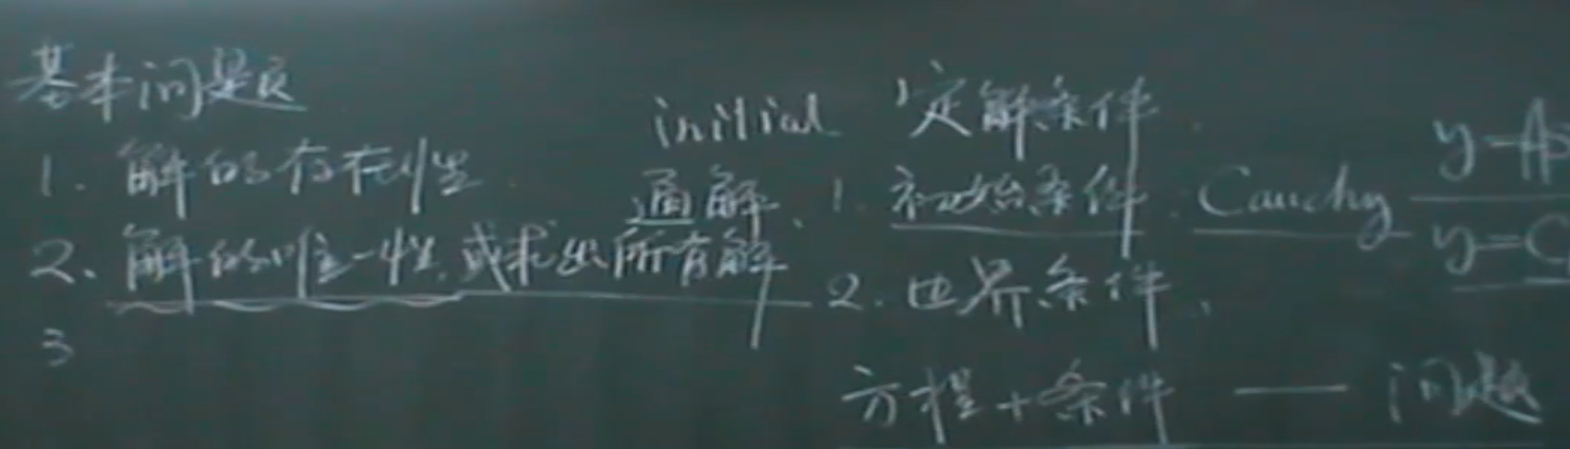 基本问题
1. 解的存在性.
2、解的唯一性,或求出所有解
3
initial
通解、
定解条件.
1. 初始条件. Cauchy
2. 边界条件.
方程+条件 — 问题
y=
y=C